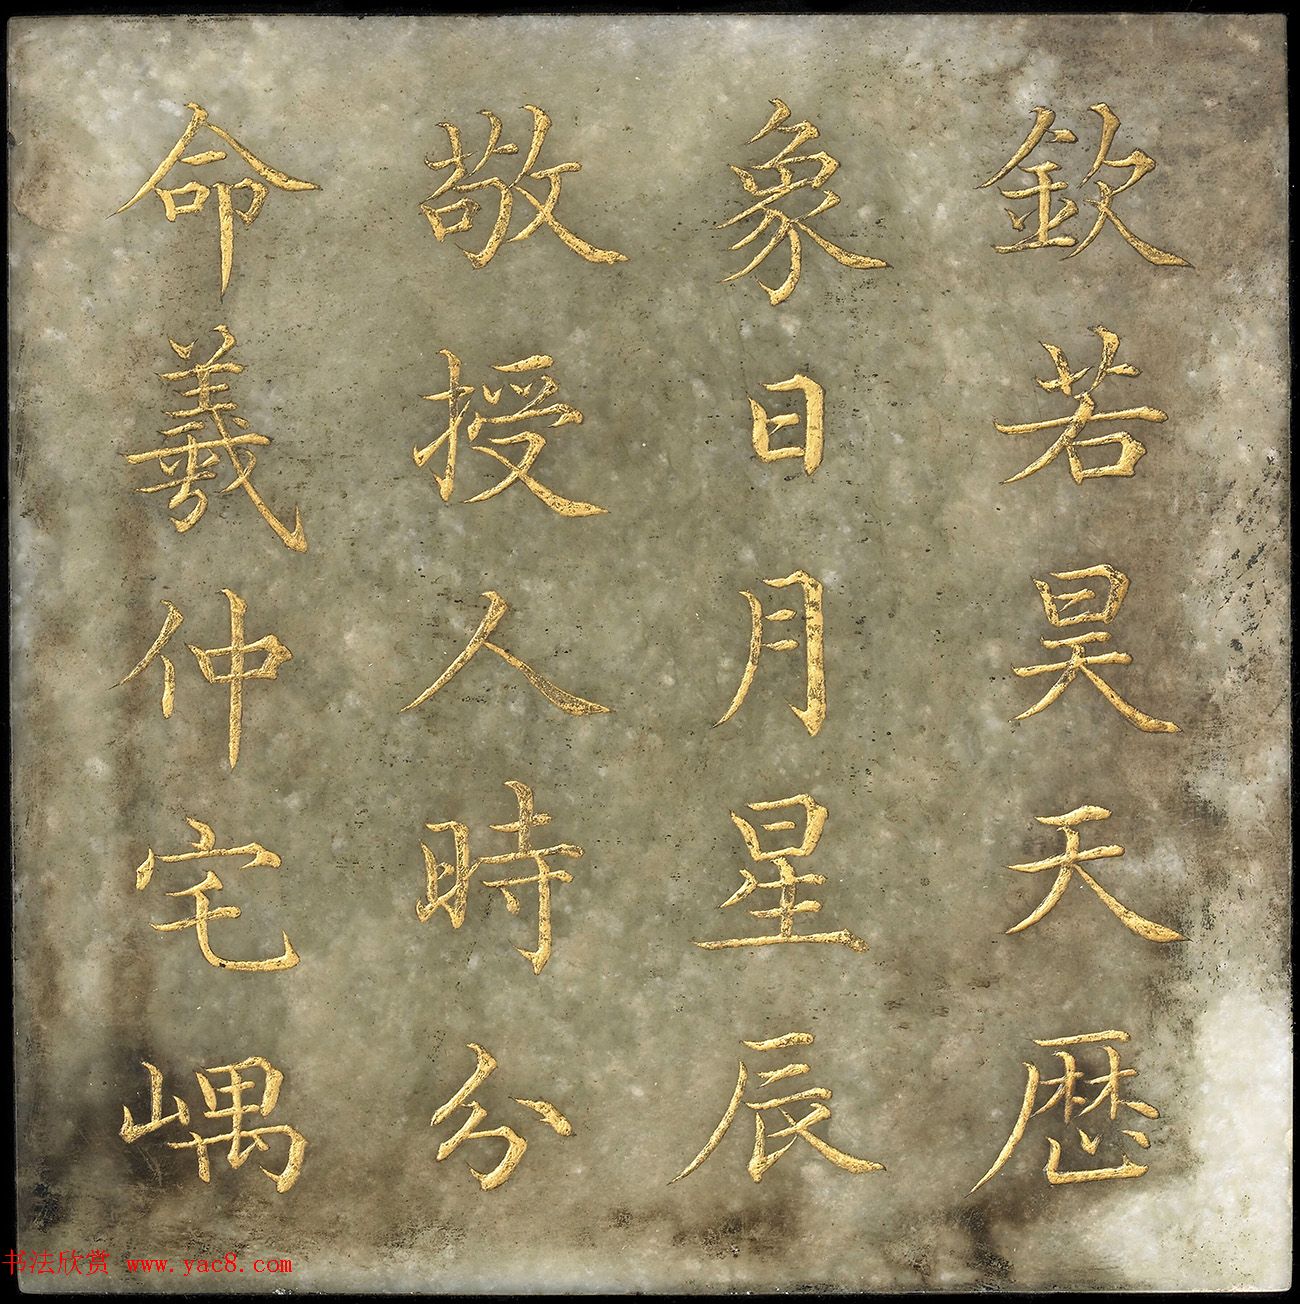 欽若昊天厯
象日月星辰
敬授人時分
命羲仲宅嵎
书法欣赏 www.yac8.com